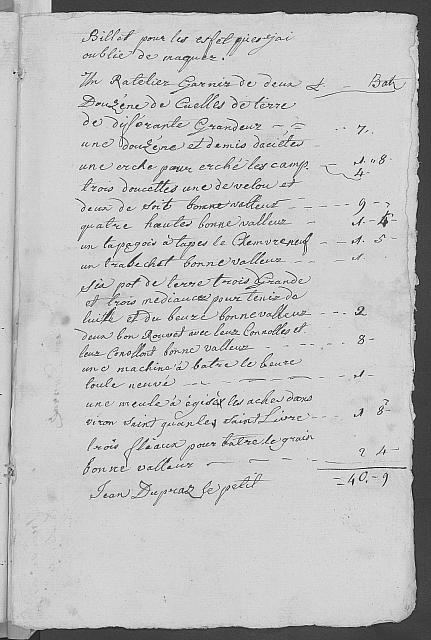 Billet pour les esfet que j'ai
oublié de maquer.
Un Ratelier Garnir de deux L - Batz
Douzéne de Cuelles de terre
de diférante Grandeur - - - 7.
une douzéne et demis daciétes
une erche pour erché les camp - 1 " 8
trois doucettes une de velou et 4
deux de soit bonne valleur - - - 9 -
quatre hautes bonne valleur - - 1 - 4
un lapagois à tapes le Chemvreneuf - 1. 5
un trabechet bonne valleur - - - 1 -
six pot de terre trois Grande
et trois mediaucez pour tenir de
luile et du beure bonne valleur - - 2
deux bon Rouvet avec leur Connolles et
leur Conolloit bonne valleur - - 8 -
une machine à batre le beure
toule neuve - - - 1 -
une meule à égisex les ache dans
viron saint quante saint Livre - - 1 8
trois fléaux pour batre le grain
bonne valleur - - - 2 4 -
= 40. - 9
Jean Dupraz le petit